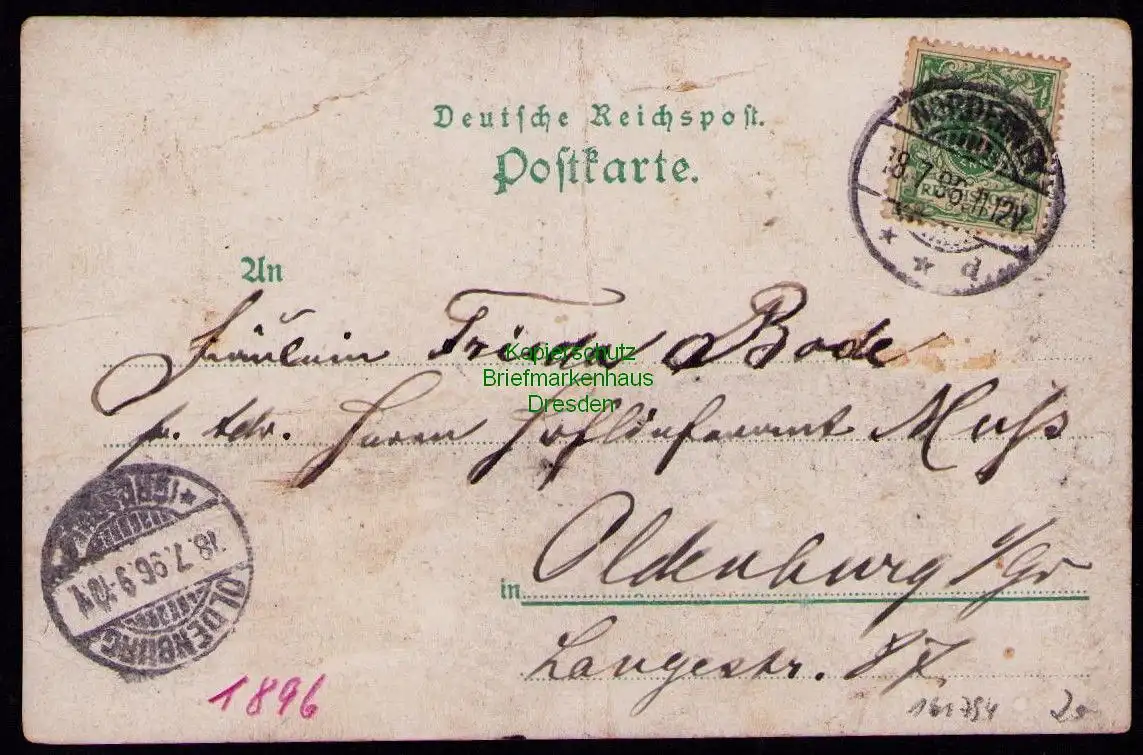 Deutsche Reichspost.
Postkarte.
NORDERNEY
18.7.96.11-12V
* * d.
An
Fräulein Frieda Bode
Kopierschutz
Briefmarkenhaus
Dresden
p. Adr. Herrn Hoflieferant
in Oldenburg i/Gr
Langestr. 87
OLDENBURG
18.7.96.9-10N
1896